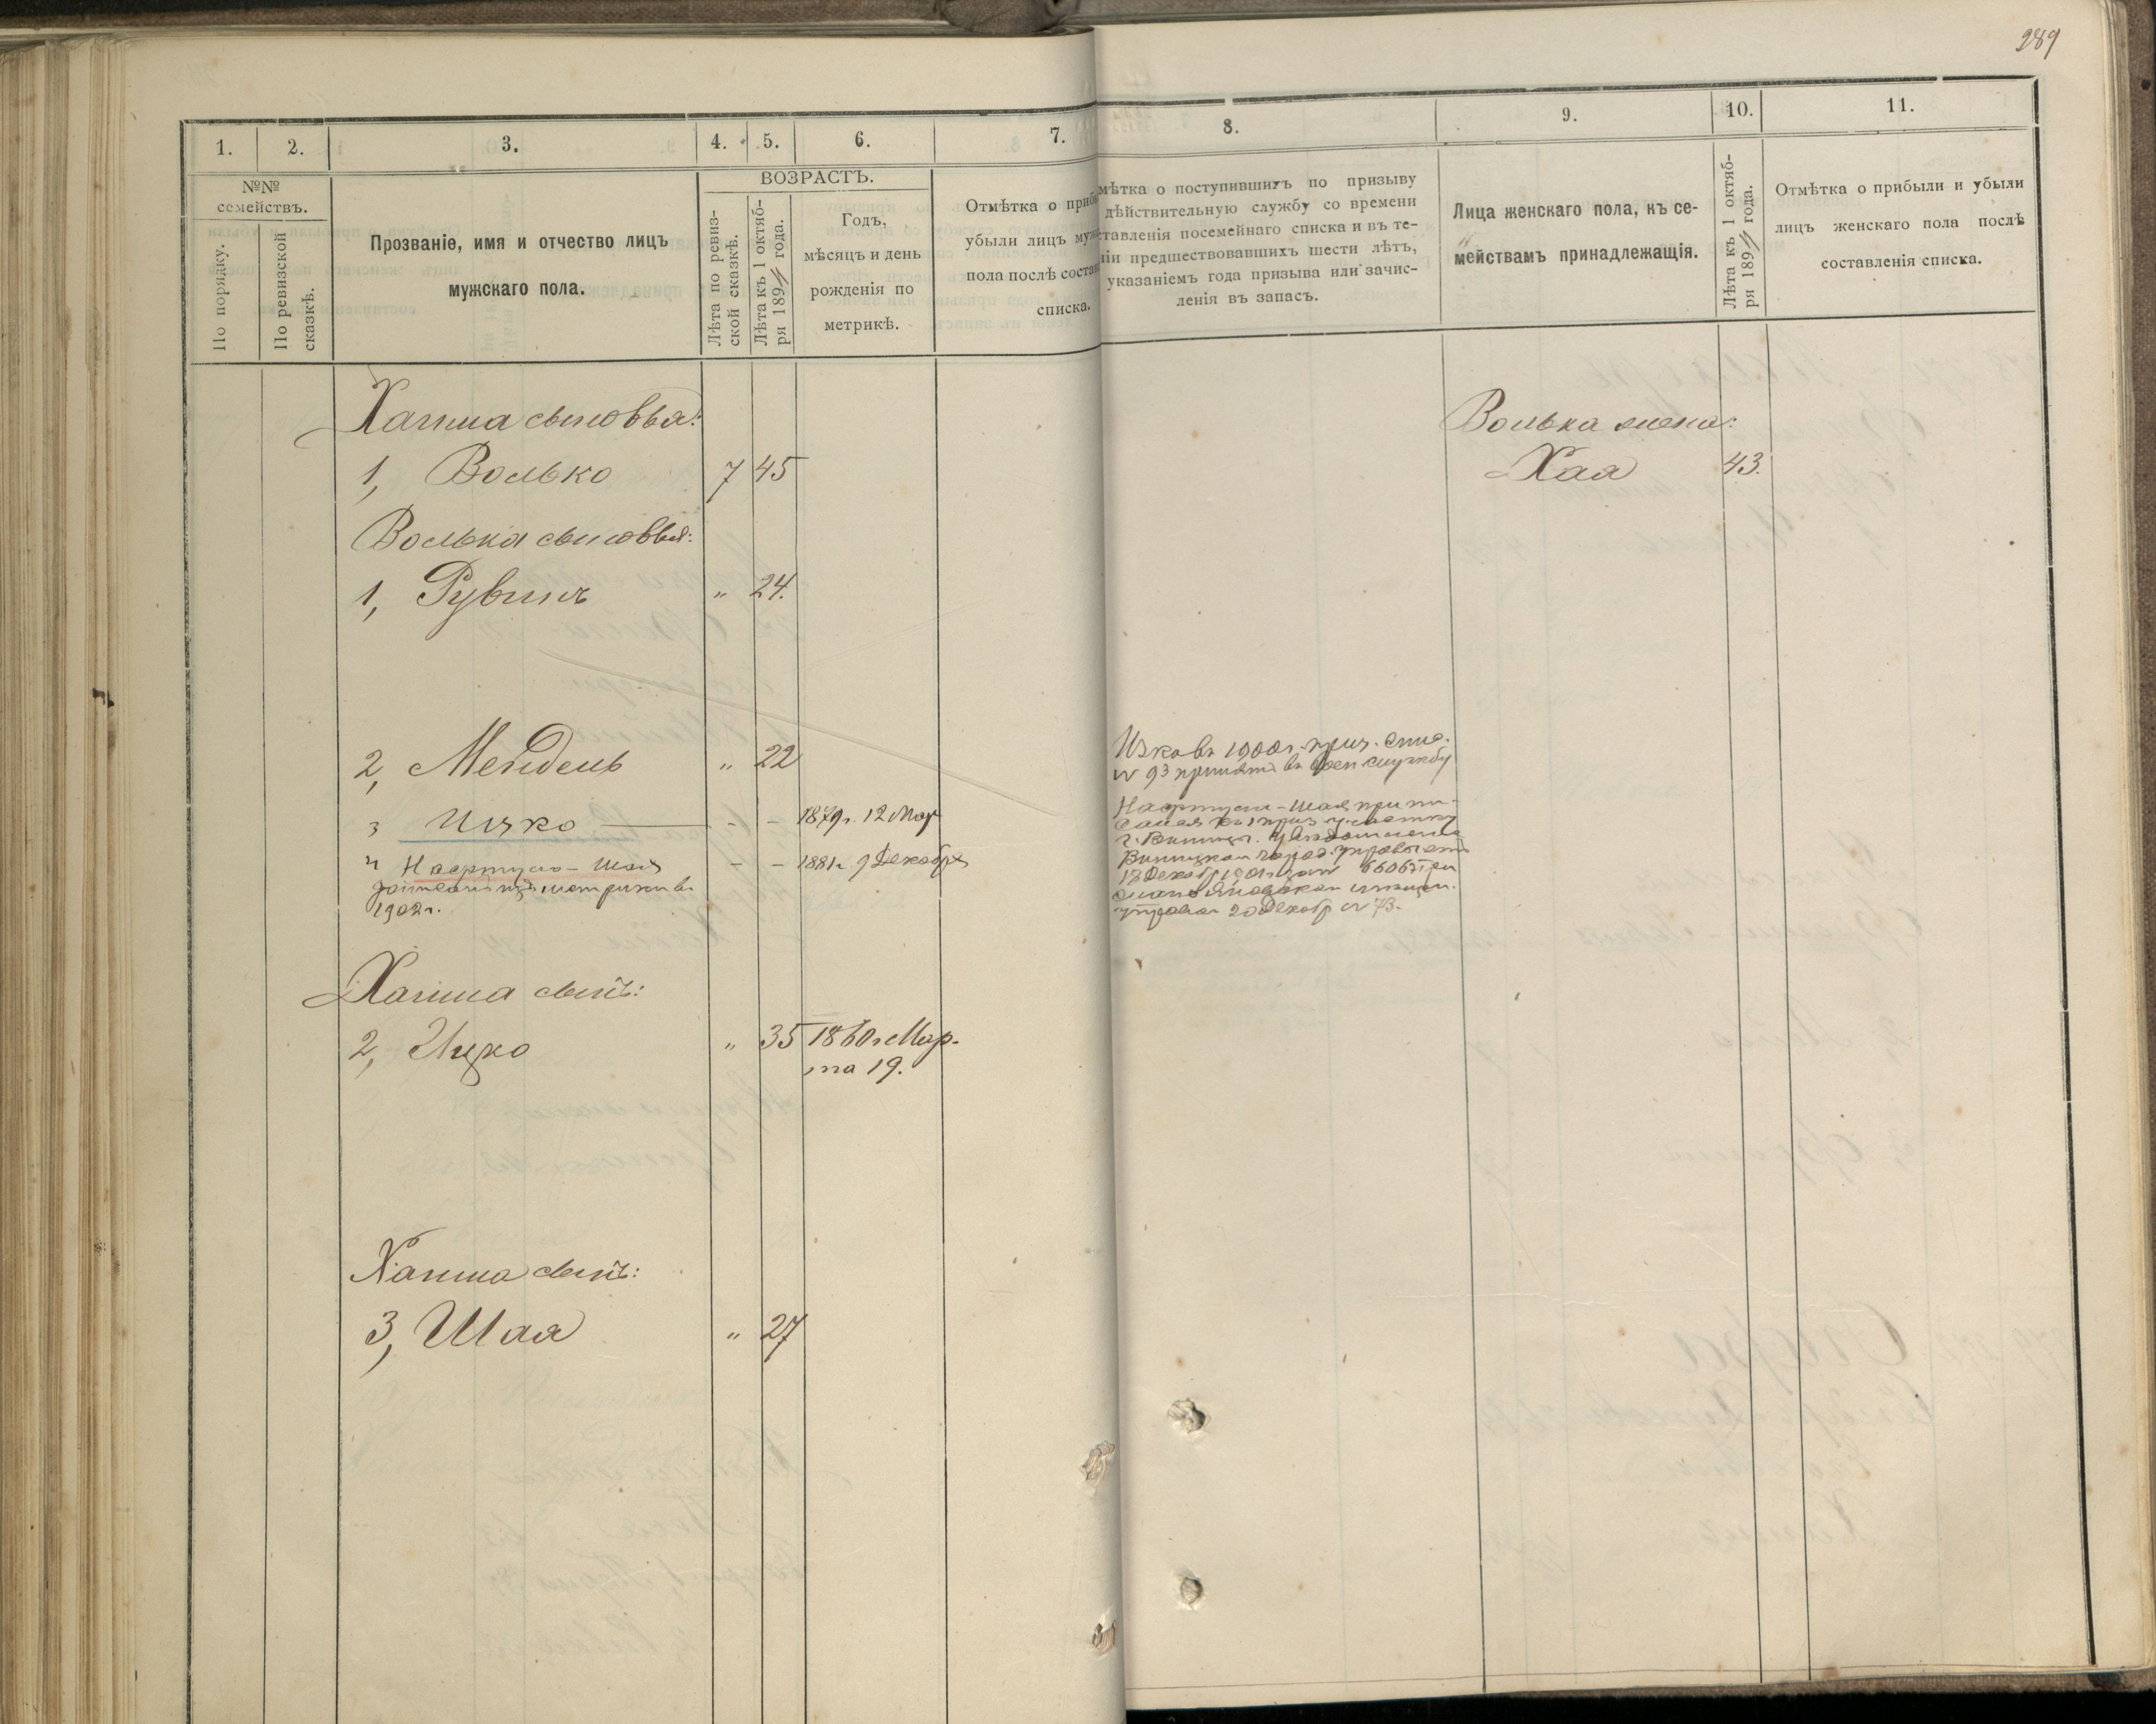 289
1.
2.
3.
4.
5.
6.
7.
8.
9.
10.
11.
№№
семействъ.
По порядку.
По ревизской
сказкѣ.
Прозваніе, имя и отчество лицъ
мужскаго пола.
ВОЗРАСТЪ.
Лѣта по ревиз-
ской сказкѣ.
Лѣта къ 1 октяб-
ря 189 года.
Годъ,
мѣсяцъ и день
рожденія по
метрикѣ.
Отмѣтка о приб
убыли лицъ муж
пола послѣ состав
списка.
мѣтка о поступившихъ по призыву
дѣйствительную службу со времени
тавленія посемейнаго списка и въ те-
ніи предшествовавшихъ шести лѣтъ,
указаніемъ года призыва или зачис-
ленія въ запасъ.
Лица женскаго пола, къ се-
мействамъ принадлежащія.
Лѣта къ 1 октяб-
ря 189 года.
Отмѣтка о прибыли и убыли
лицъ женскаго пола послѣ
составленія списка.
Хаима сыновья:
Волька жена:
1, Волько 7 45
Хая 43.
Волька сыновья:
1, Рувинъ " 24.
2, Мендель " 22
Ицко въ 1900 г. приз. спис.
№ 93 принятъ въ воен службу
3 Ицко - - 1879 г. 12 Мар
4 - Шая - - 1881 г. 9 Декабря
1902 г.
- Шая припи-
къ 1 приз участку
г. Винницы.
Винницкой город. управы отъ
20 Декабр № 73.
Хаима сынъ:
2, Ицко " 35 1860 г Мар-
та 19.
Хаима сынъ:
3, Шая " 27